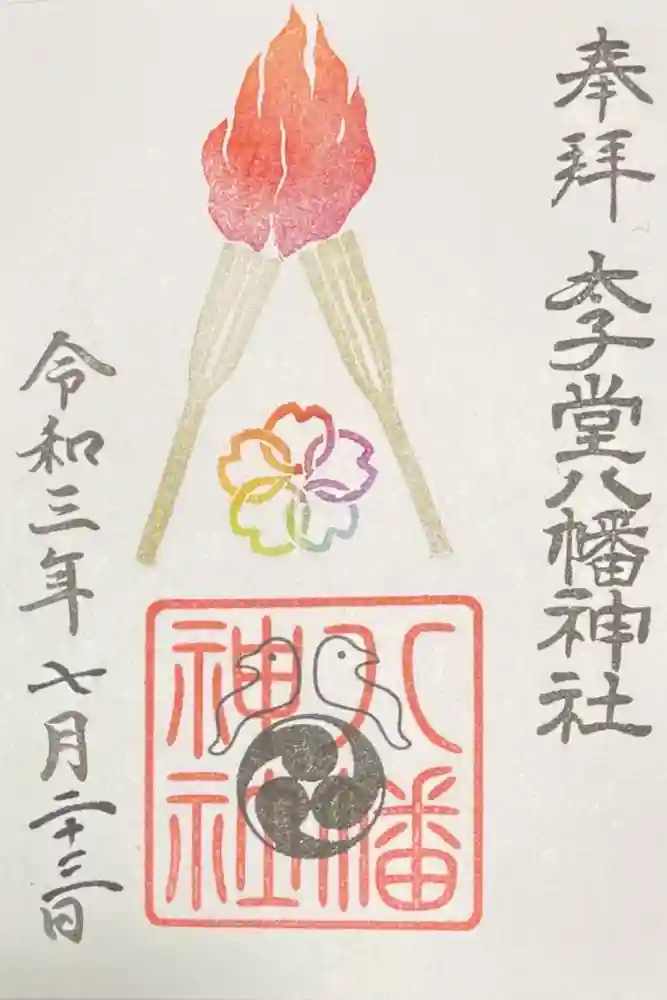 奉拝
太子堂八幡神社
八幡
神社
令和三年七月二十三日